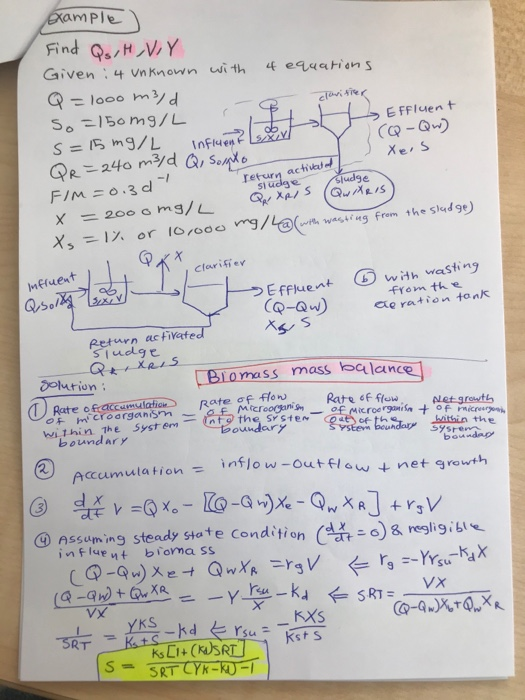 Example
Find Qs, H, V, Y
Given : 4 unknown with 4 equations
Q = 1000 m³/d
S₀ = 150 mg/L
S = 15 mg/L
QR = 240 m³/d
F/M = 0.3 d⁻¹
X = 2000 mg/L
Xs = 1% or 10,000 mg/L
clarifier
Influent
Q, S₀, X₀
S, X, V
Effluent
(Q-Qw)
Xe, S
return activated
sludge
QR, XR, S
sludge
Qw, XR, S
ⓐ (with wasting from the sludge)
Q X
Influent
Q, S₀,
S, X, V
clarifier
Effluent
(Q-Qw)
S
Return activated
sludge
QR, XR, S
ⓑ with wasting
from the
aeration tank
Biomass mass balance
Solution :
① Rate of accumulation of microorganism within the system boundary = Rate of flow of microorganism into the system boundary − Rate of flow of microorganism out of the system boundary + Net growth of microorganism within the system boundary
② Accumulation = inflow - outflow + net growth
③ dx/dt V = Q X₀ - [(Q-Qw)Xe - Qw XR] + rg V
④ Assuming steady state condition (dx/dt = 0) & negligible
influent biomass
(Q-Qw) Xe + Qw XR = rg V ⇐ rg = -Y rsu - Kd X
(Q-Qw) + Qw XR / VX = -Y rsu/X - Kd ⇐ SRT = VX / (Q-Qw)Xe + Qw XR
1/SRT = YKS/Ks+S - Kd ⇐ rsu = - KXS/Ks+S
S = Ks[1+(Kd)SRT] / SRT (YK-Kd)-1